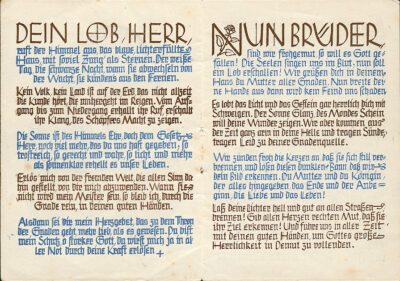 DEIN LOB, HERR,
ruft der Himmel aus, das blaue, lichterfüllte
Haus, mit soviel Zung' als Sternen. Der weiße
Tag, die schwarze Nacht, wenn sie abwechseln von
der Wacht, sie künden's aus den Fernen.
Kein Volk, kein Land ist auf der Erd, das nicht allzeit
die Kunde hört, die mitergeht im Reigen. Vom Auf-
gang bis zum Niedergang erhallt ihr Ruf, erschallt
ihr Klang, des Schöpfers Macht zu zeigen.
Die Sonne ist des Himmels Ehr, doch dein Gesetz,
Herr, noch viel mehr, das du uns hast gegeben, so
trostreich, so gerecht und wahr, so licht und mehr
als sonnenklar erhellt es unser Leben.
Erlös mich von der fremden Welt, die allen Sinn da-
hin gestellt, von dir mich abzuwenden. Wann sie
nicht wird mein Meister sein, so bleib ich durch die
Gnade rein, in deinen guten Händen.
Alsdann sei dir mein Herzgebet, das zu dem Thron
der Gnaden geht, mehr lieb als es gewesen. Du bist
mein Schutz, o starker Gott, du wirst mich ja in al-
ler Not durch deine Kraft erlösen
NUN BRÜDER
sind wir frohgemut, so will es Gott ge-
fallen! Die Seelen singen uns im Blut, nun soll
ein Lob erschallen! Wir grüßen dich in deinem
Haus, du Mutter aller Gnaden. Nun breite dei-
ne Hände aus, dann wird kein Feind uns schaden.
Es lobt das Licht und das Gestein gar herrlich dich mit
Schweigen. Der Sonne Glanz, des Mondes Schein
will deine Wunder zeigen. Wir aber kommen, aus
der Zeit ganz arm in deine Helle und tragen Sünde,
tragen Leid zu deiner Gnadenquelle.
Wir zünden froh die Kerzen an, daß sie sich still ver-
brennen, und lösen diesen dunklen Bann, daß wir
dein Bild erkennen. Du Mutter und du Königin,
der alles hingegeben, das Ende und der Anbe-
ginn, die Liebe und das Leben!
Laß deine Lichter hell und gut an allen Straßen
brennen! Gib allen Herzen rechten Mut, daß sie
ihr Ziel erkennen! Und führe uns in aller Zeit
mit deinen guten Händen, um Gottes große
Herrlichkeit in Demut zu vollenden.